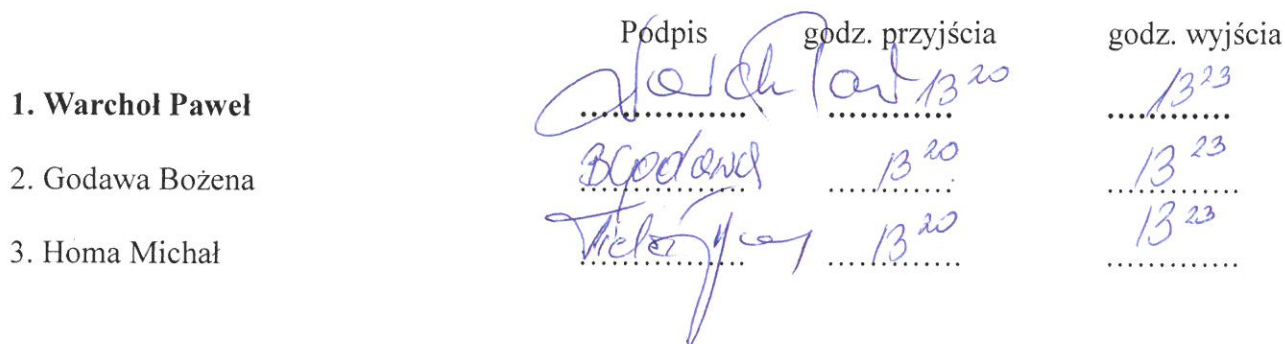 Podpis godz. przyjścia godz. wyjścia
1. Warchoł Paweł 13 20 13 23
2. Godawa Bożena BGodawa 13 20 13 23
3. Homa Michał 13 20 13 23